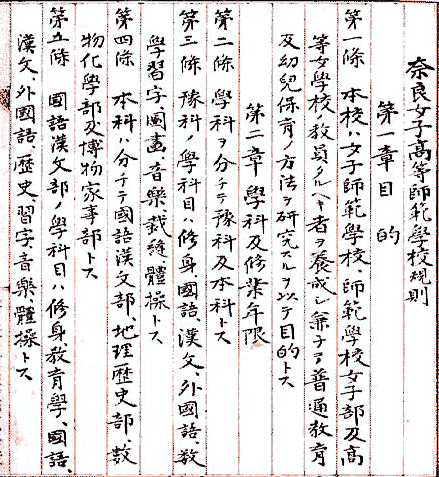 奈良女子高等師範學校規則
第一章 目的
第一條 本校ハ女子師範學校、師範學校女子部及高
等女學校ノ教員タルヘキ者ヲ養成シ兼テ普通教育
及幼兒保育ノ方法ヲ研究スルヲ以テ目的トス
第二章 學科及修業年限
第二條 學科ヲ分チテ豫科及本科トス
第三條 豫科ノ學科目ハ修身、國語、漢文、外國語、數
學習字圖畫音樂裁縫體操トス
第四條 本科ハ分チテ國語漢文部、地理歴史部、數
物化學部及博物家事部トス
第五條 國語漢文部ノ學科目ハ修身教育學、國語、
漢文、外國語、歴史、習字、音樂、體操トス